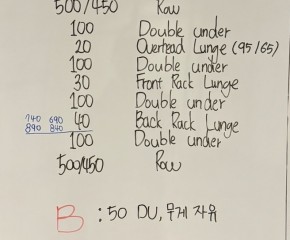 500/450 Row
100 Double under
20 Overhead Lunge (95/65)
100 Double under
30 Front Rack Lunge
100 Double under
740 690 40 Back Rack Lunge
890 840 100 Double under
500/450 Row
B : 50 DU, 무게 자유